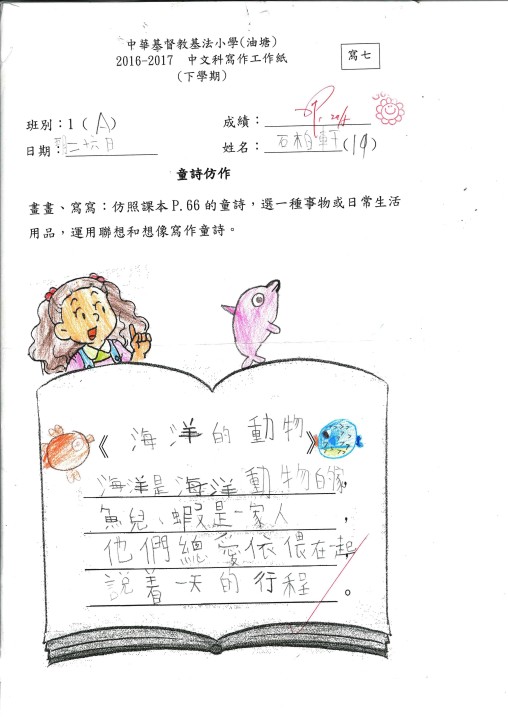 中華基督教基法小學(油塘)
2016-2017 中文科寫作工作紙
(下學期)
寫七
班別:1(A)
成績:
日期:二十六日
姓名:石柏軒(19)
童詩仿作
畫畫、寫寫:仿照課本P.66的童詩,選一種事物或日常生活
用品,運用聯想和想像寫作童詩。
《海洋的動物》
海洋是海洋動物的家,
魚兒、蝦是一家人,
他們總愛依偎在一起,
說着一天的行程。